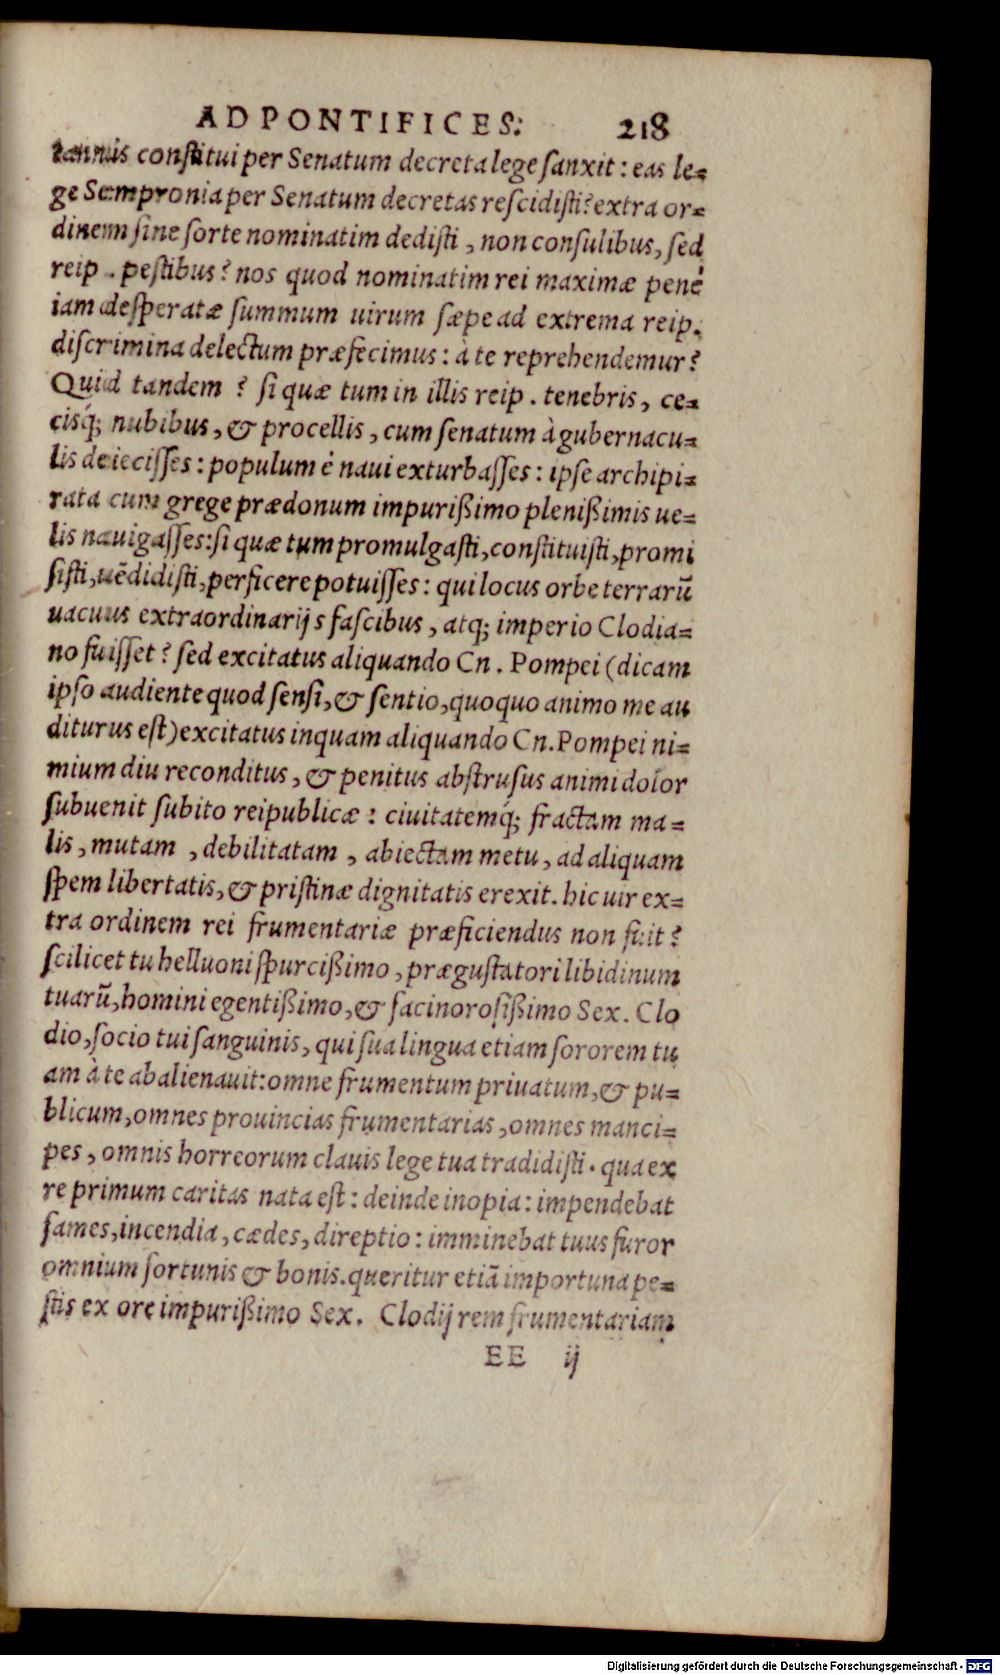 AD PONTIFICES: 218
tannis constitui per Senatum decreta lege sanxit: eas le=
ge Sempronia per Senatum decretas rescidisti? extra or=
dinem sine sorte nominatim dedisti, non consulibus, sed
reip. pestibus? nos quod nominatim rei maximæ penè
iam desperatæ summum uirum sæpe ad extrema reip.
discrimina delectum præfecimus: à te reprehendemur?
Quid tandem? si quæ tum in illis reip. tenebris, ce=
cisq́; nubibus, & procellis, cum senatum à gubernacu=
lis deiecisses: populum è naui exturbasses: ipse archipi=
rata cum grege prædonum impurißimo plenißimis ue=
lis nauigasses: si quæ tum promulgasti, constituisti, promi
sisti, uēdidisti, perficere potuisses: qui locus orbe terrarū
uacuus extraordinarijs fascibus, atq; imperio Clodia=
no fuisset? sed excitatus aliquando Cn. Pompei (dicam
ipso audiente quod sensi, & sentio, quoquo animo me au
diturus est) excitatus inquam aliquando Cn. Pompei ni=
mium diu reconditus, & penitus abstrusus animi dolor
subuenit subito reipublicæ: ciuitatemq́; fractam ma=
lis, mutam, debilitatam, abiectam metu, ad aliquam
spem libertatis, & pristinæ dignitatis erexit. hic uir ex=
tra ordinem rei frumentariæ præficiendus non fuit?
scilicet tu helluoni spurcißimo, prægustatori libidinum
tuarū, homini egentißimo, & facinorosißimo Sex. Clo
dio, socio tui sanguinis, qui sua lingua etiam sororem tu
am à te abalienauit: omne frumentum priuatum, & pu=
blicum, omnes prouincias frumentarias, omnes manci=
pes, omnis horreorum clauis lege tua tradidisti. qua ex
re primum caritas nata est: deinde inopia: impendebat
fames, incendia, cædes, direptio: imminebat tuus furor
omnium fortunis & bonis. queritur etiā importuna pe=
stis ex ore impurißimo Sex. Clodij rem frumentariam
EE ij
Digitalisierung gefördert durch die Deutsche Forschungsgemeinschaft - DFG